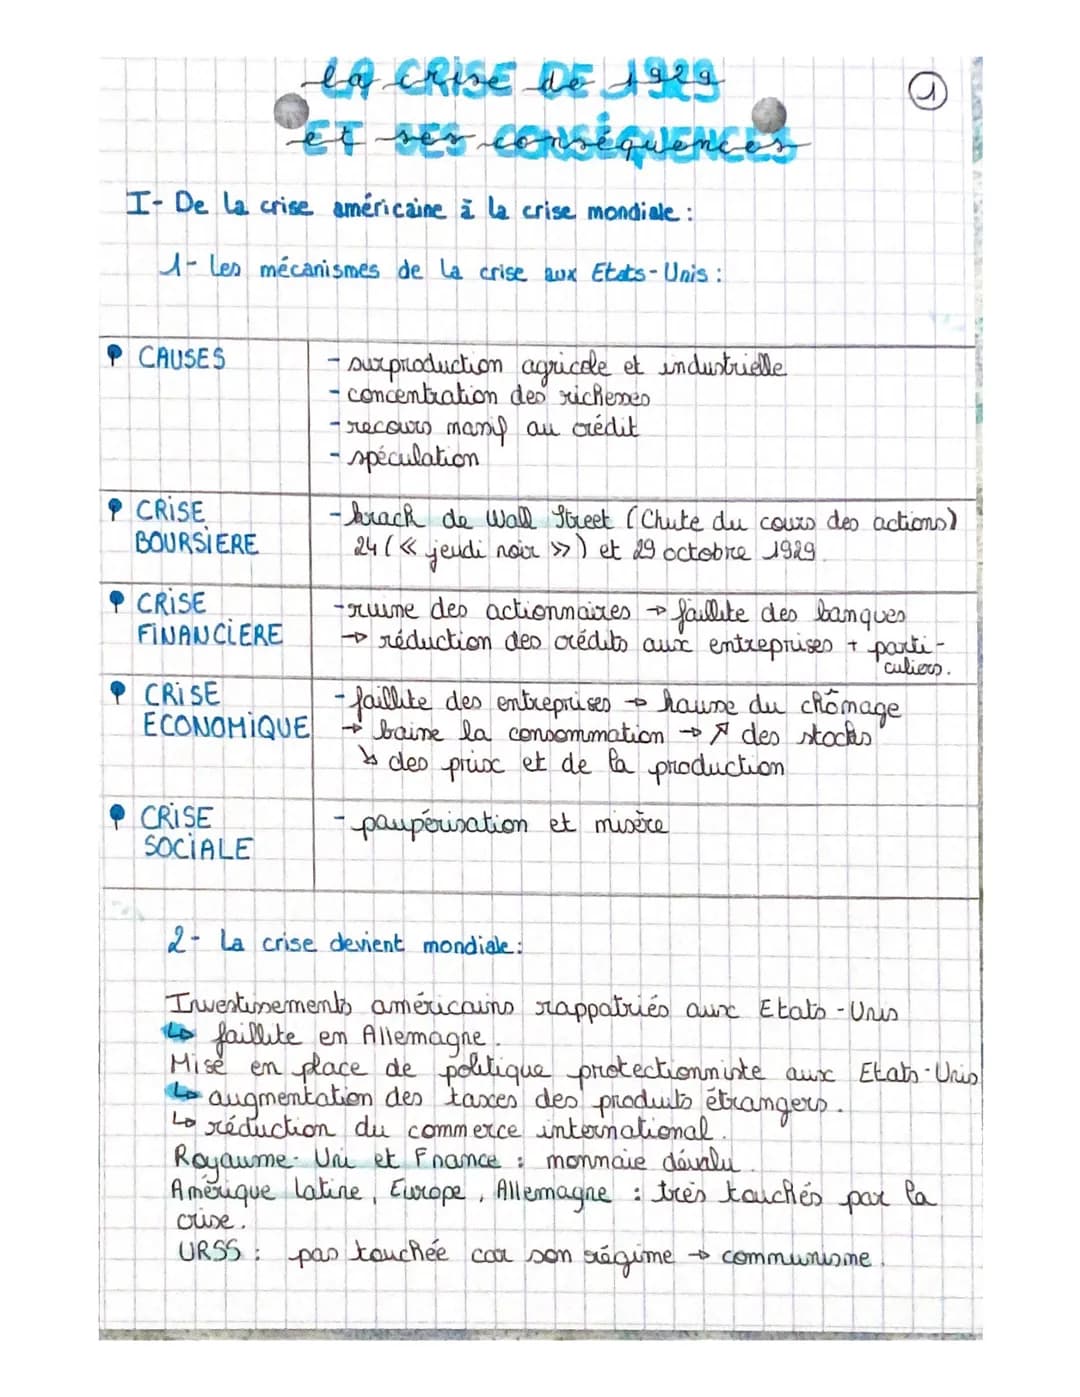 LA CRISE DE 1929
ET SES CONSÉQUENCES
1
I- De la crise américaine à la crise mondiale :
1- Les mécanismes de la crise aux Etats-Unis :
CAUSES
- surproduction agricole et industrielle
- concentration des richesses
- recours massif au crédit
- spéculation
CRISE
BOURSIERE
- krach de Wall Street (Chute du cours des actions)
24 (« jeudi noir ») et 29 octobre 1929.
CRISE
FINANCIERE
- ruine des actionnaires → faillite des banques
→ réduction des crédits aux entreprises + parti-
culiers.
CRISE
ECONOMIQUE
- faillite des entreprises → hausse du chômage
→ baisse la consommation → ↗ des stocks
↘ des prix et de la production
CRISE
SOCIALE
- paupérisation et misère
2- La crise devient mondiale :
Investissements américains rappatriés aux Etats-Unis
↳ faillite en Allemagne.
Mise en place de politique protectionniste aux Etats-Unis
↳ augmentation des taxes des produits étrangers.
↳ réduction du commerce international.
Royaume-Uni et France : monnaie dévalu.
Amérique latine, Europe, Allemagne : très touchés par la
crise.
URSS : pas touchée car son régime → communisme.